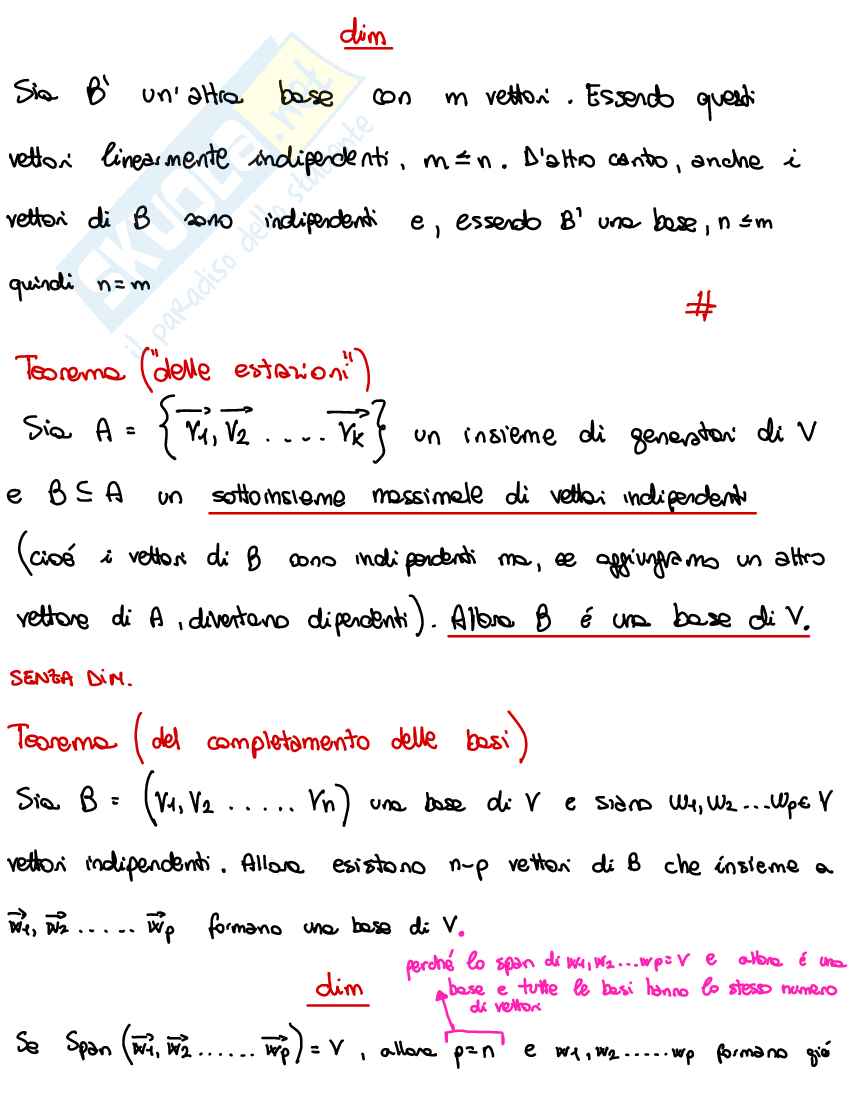 dim
Sia B' un'altra base con m vettori. Essendo questi
vettori linearmente indipendenti, m ≤ n. D'altro canto, anche i
vettori di B sono indipendenti e, essendo B' una base, n ≤ m
quindi n = m
#
Teorema ("delle estrazioni")
Sia A = {v1, v2 .... vk} un insieme di generatori di V
e B ⊆ A un sottoinsieme massimale di vettori indipendenti
(cioé i vettori di B sono indipendenti ma, se aggiungiamo un altro
vettore di A, diventano dipendenti). Allora B é una base di V.
SENZA DIM.
Teorema (del completamento delle basi)
Sia B = (v1, v2 ..... vn) una base di V e siano w1, w2 ... wp ∈ V
vettori indipendenti. Allora esistono n-p vettori di B che insieme a
w1, w2 ..... wp formano una base di V.
perché lo span di w1, w2 ... wp = V e allora é una
base e tutte le basi hanno lo stesso numero
di vettori
dim
Se Span (w1, w2 ...... wp) = V, allora p=n e w1, w2 ..... wp formano giá
SKUOLA.net
il paradiso dello studente